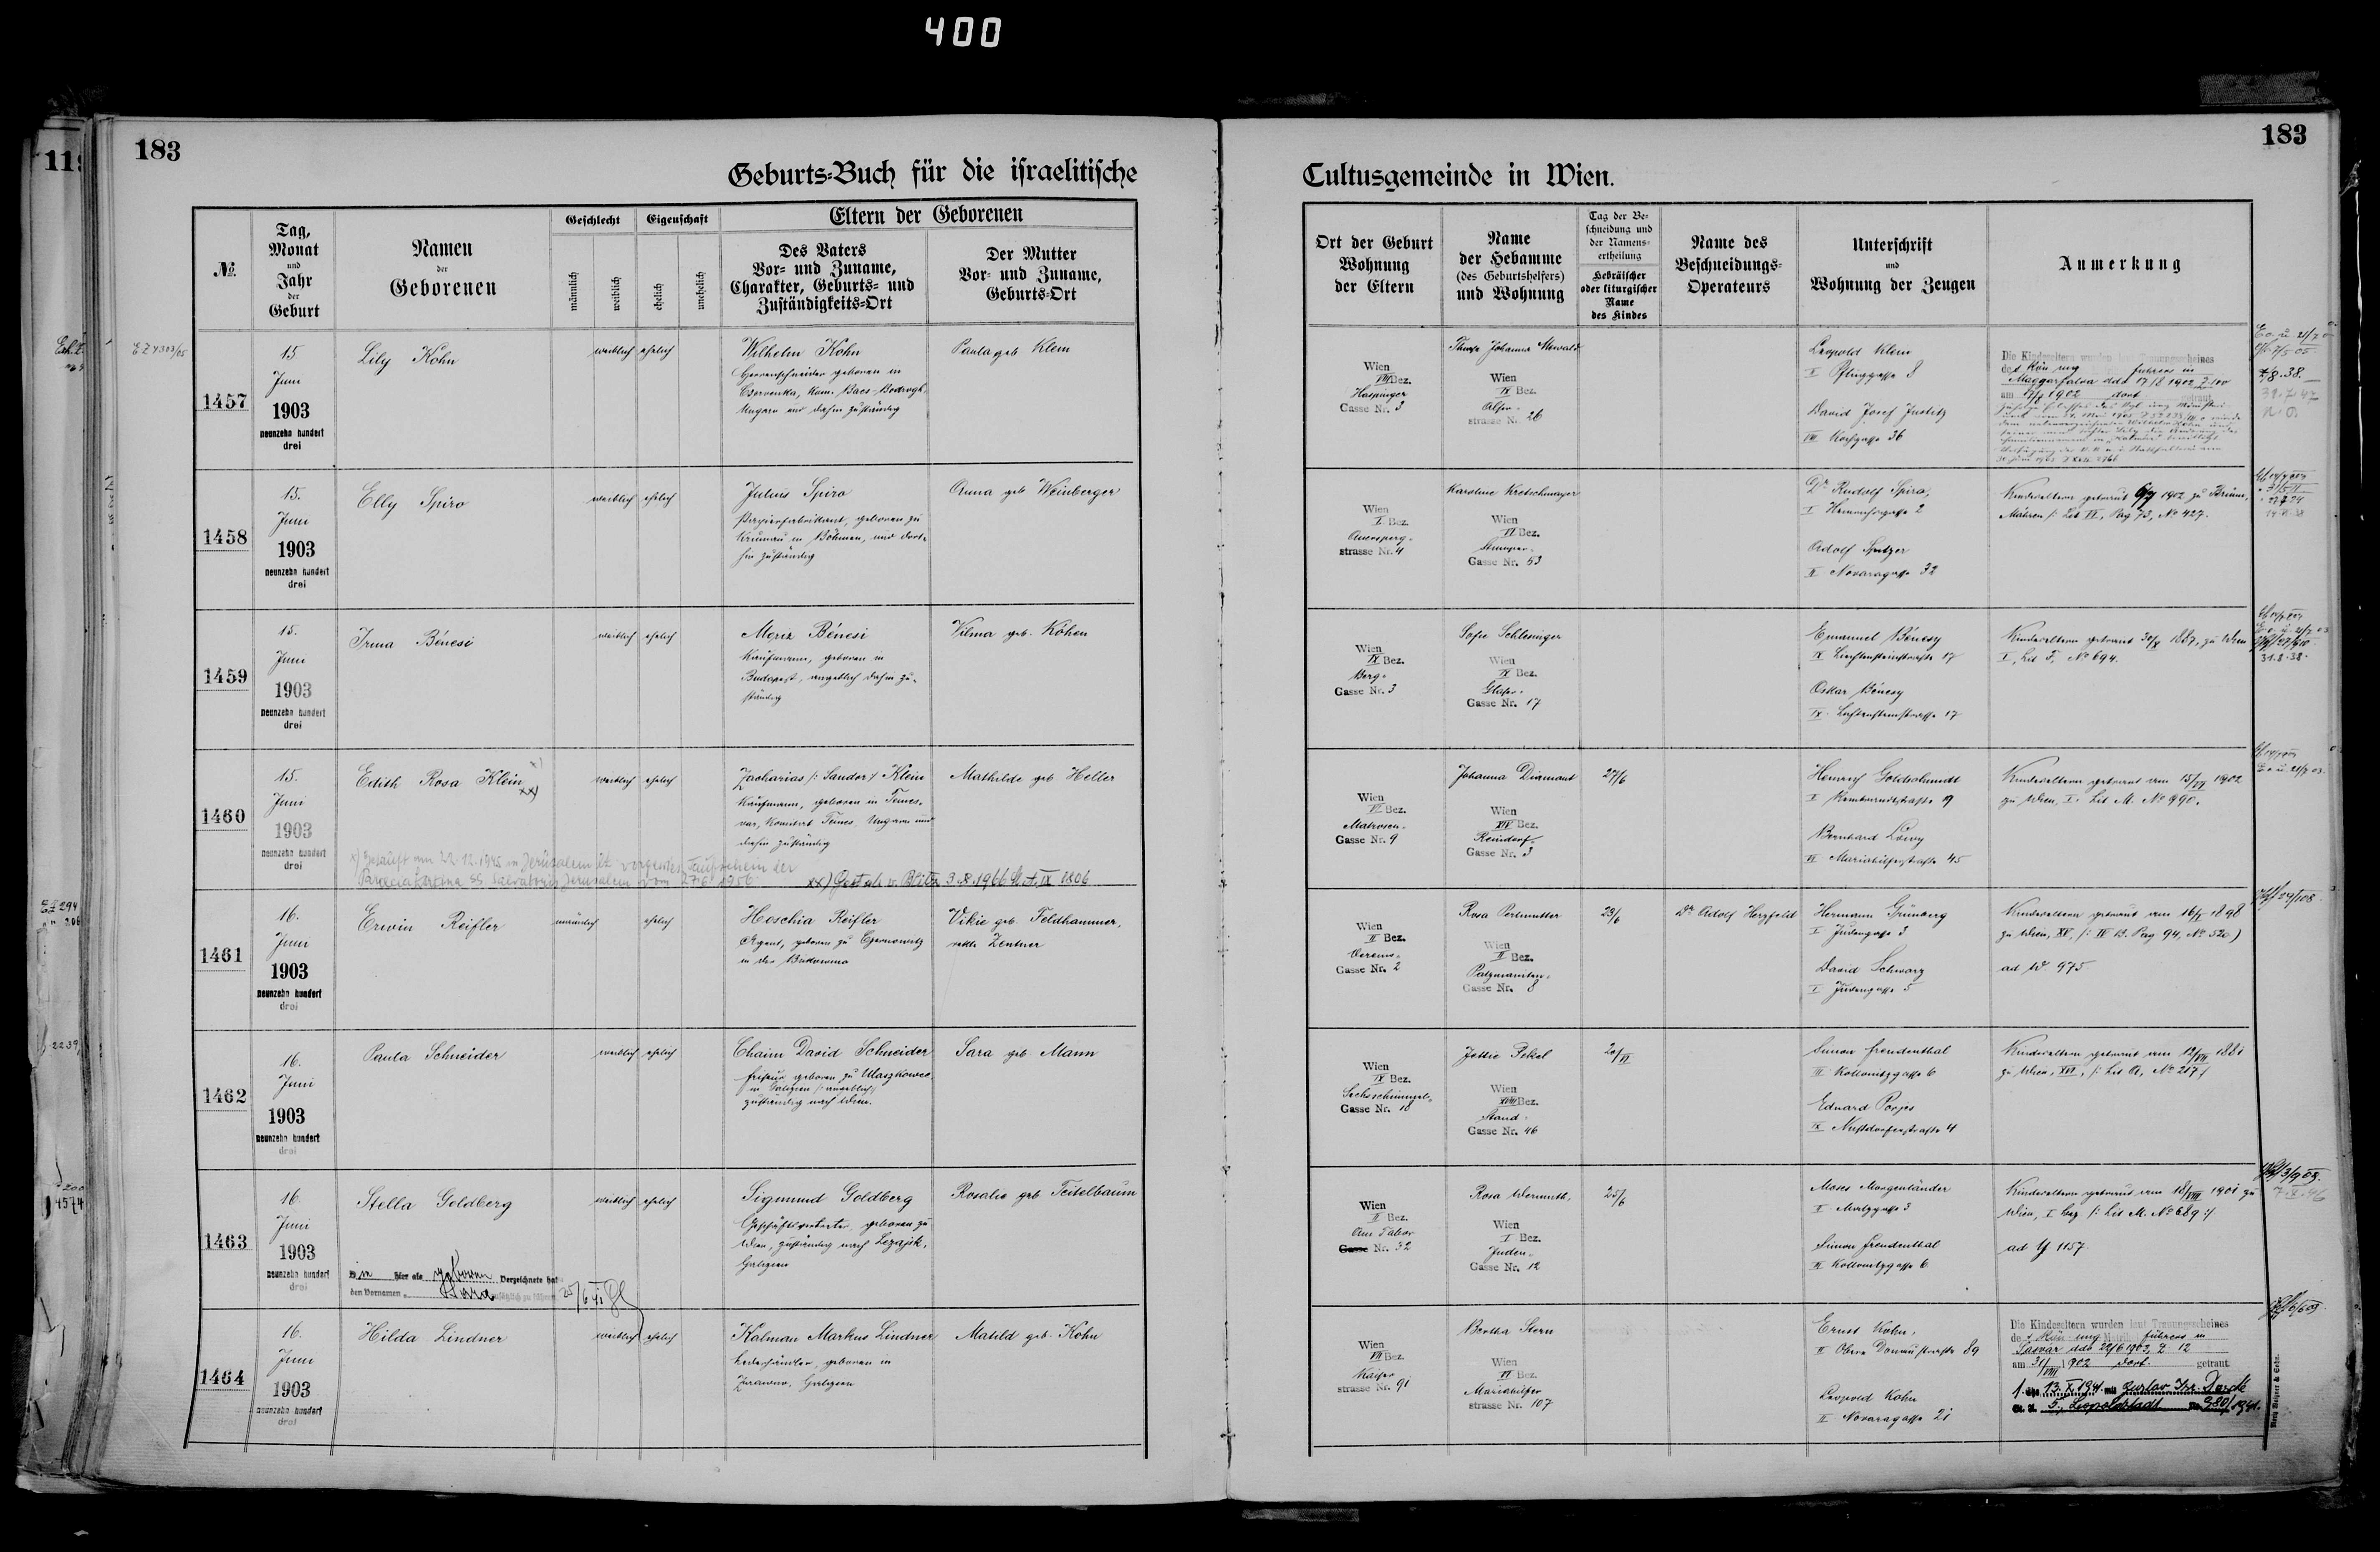 400
183
183
Geburts-Buch für die israelitische
Cultusgemeinde in Wien.
№.
Tag, Monat und Jahr der Geburt
Namen der Geborenen
Geschlecht
männlich
weiblich
Eigenschaft
ehelich
unehelich
Eltern der Geborenen
Des Vaters Vor- und Zuname, Charakter, Geburts- und Zuständigkeits-Ort
Der Mutter Vor- und Zuname, Geburts-Ort
Ort der Geburt Wohnung der Eltern
Name der Hebamme (des Geburtshelfers) und Wohnung
Tag der Beschneidung und der Namensertheilung
Hebräischer oder liturgischer Name des Kindes
Name des Beschneidungs-Operateurs
Unterschrift und Wohnung der Zeugen
Anmerkung
1457
15
Juni
1903
neunzehn hundert
drei
Lily Kohn
weiblich ehelich
Wilhelm Kohn
Herrenschneider geboren in
Cservenka, Kom. Bacs-Bodrogh
Ungarn und dahin zuständig
Paula geb Klein
Wien
VIII Bez.
Haspinger
Gasse Nr. 3
Wien
IX Bez.
Alser-
strasse Nr. 26
Leopold Klein
David Josef Justitz
VIII Kochgasse 36
Die Kindeseltern wurden laut Trauungsscheines
1458
15.
Juni
1903
neunzehn hundert
drei
Elly Spiro
weiblich ehelich
Julius Spiro
Papierfabrikant, geboren zu
Krumau in Böhmen, und dort-
hin zuständig
Anna geb Weinberger
Wien
I. Bez.
Auersperg-
strasse Nr. 4
Karoline Kretschmayer
Wien
VI Bez.
Stumper-
Gasse Nr. 53
Dr Rudolf Spiro,
Adolf Spitzer
II Novaragasse 32
Kindeseltern getraut 6/7 1902 zu Brünn,
Mähren /: Lib VI, Pag 73, No 427.
1459
15.
Juni
1903
neunzehn hundert
drei
Irma Bénesi
weiblich ehelich
Moriz Bénesi
Kaufmann, geboren in
Budapest, angeblich dahin zu-
ständig
Vilma geb. Kohen
Wien
IX Bez.
Berg-
Gasse Nr. 3
Sofie Schlesinger
Wien
IX Bez.
Glaser-
Gasse Nr. 17
Emanuel Bénesy
IX Liechtensteinstrasse 17
Oskar Bénesy
IX Liechtensteinstrasse 17
Kindeseltern getraut 30/X 1887, zu Wien
I, Lib F, No 694.
31.8.38.
1460
15.
Juni
1903
neunzehn hundert
drei
Edith Rosa Klein
x)
xx)
weiblich ehelich
Zacharias /: Sandor :/ Klein
Kaufmann, geboren in Temes-
var, Komitat Temes, Ungarn und
dahin zuständig
Mathilde geb Heller
x) Getauft am 22.12.1945 in Jerusalem lt. vorgelegtem Taufschein der
Parrocia Latina SS. Salvatoris Jerusalem vom 27.6.1956.
Wien
VI Bez.
Matrosen-
Gasse Nr. 9
Johanna Diamant
Wien
XIV Bez.
Reindorf-
Gasse Nr. 3
27/6
Heinrich Goldschmidt
I Rembrandtstrasse 19
Bernhard Löwy
VI Mariahilferstrasse 45
Kindeseltern getraut am 15/VI 1902
zu Wien, I. Lib M. No 990.
1461
16.
Juni
1903
neunzehn hundert
drei
Erwin Reifler
männlich ehelich
Hoschia Reifler
Agent, geboren zu Czernowitz
in der Bukowina
Vikie geb. Feldhammer,
recte Zentner
Wien
II Bez.
Vereins-
Gasse Nr. 2
Rosa Perlmutter
Wien
II Bez.
Patzmaniten-
Gasse Nr. 8
23/6
Dr Adolf Herzfeld
Hermann Grünberg
I Judengasse 3
David Schwarz
I Judengasse 5
ad W 975
1462
16.
Juni
1903
neunzehn hundert
drei
Paula Schneider
weiblich ehelich
Chaim David Schneider
Friseur geboren zu Ulaszkowce
in Galizien /: angeblich
zuständig nach Wien.
Sara geb Mann
Wien
IX Bez.
Sechsschimmel-
Gasse Nr. 18
Jettie Pekel
Wien
XVIII Bez.
Stand-
Gasse Nr. 46
20/VI
Simon Freudenthal
III Kollonitzgasse 6
Eduard Porjes
IX Nussdorferstrasse 4
Kindeseltern getraut am 12/VII 1881
zu Wien, XVI, /: Lib A, No 217 :/
1463
16.
Juni
1903
neunzehn hundert
drei
Stella Goldberg
weiblich ehelich
Die hier als geboren Verzeichnete hat
den Vornamen Sara zusätzlich zu führen
Sigmund Goldberg
Geschäftsvertreter, geboren zu
Wien, zuständig nach Lezajsk,
Galizien
Rosalie geb Teitelbaum
Wien
II Bez.
Am Tabor
Gasse Nr. 32
Rosa Wermuth,
Wien
I Bez.
Juden-
Gasse Nr. 12
25/6
Moses Morgenländer
Simon Freudenthal
III Kollonitzgasse 6
Kindeseltern getraut am 18/VIII 1901 zu
Wien, I Bez /: Lib M. No 689 :/
ad G 1157.
1464
16.
Juni
1903
neunzehn hundert
drei
Hilda Lindner
weiblich ehelich
Kalman Markus Lindner
Lederhändler, geboren in
Zurawno, Galizien
Matild geb. Kohn
Wien
VII Bez.
Kaiser
strasse Nr. 91
Bertha Stern
Wien
VI Bez.
Mariahilfer
strasse Nr. 107
Ernst Kohn,
II Obere Donaustrasse 89
Leopold Kohn
II Novaragasse 21
Die Kindeseltern wurden laut Trauungsscheines
am 31/VIII 1902 dort getraut.